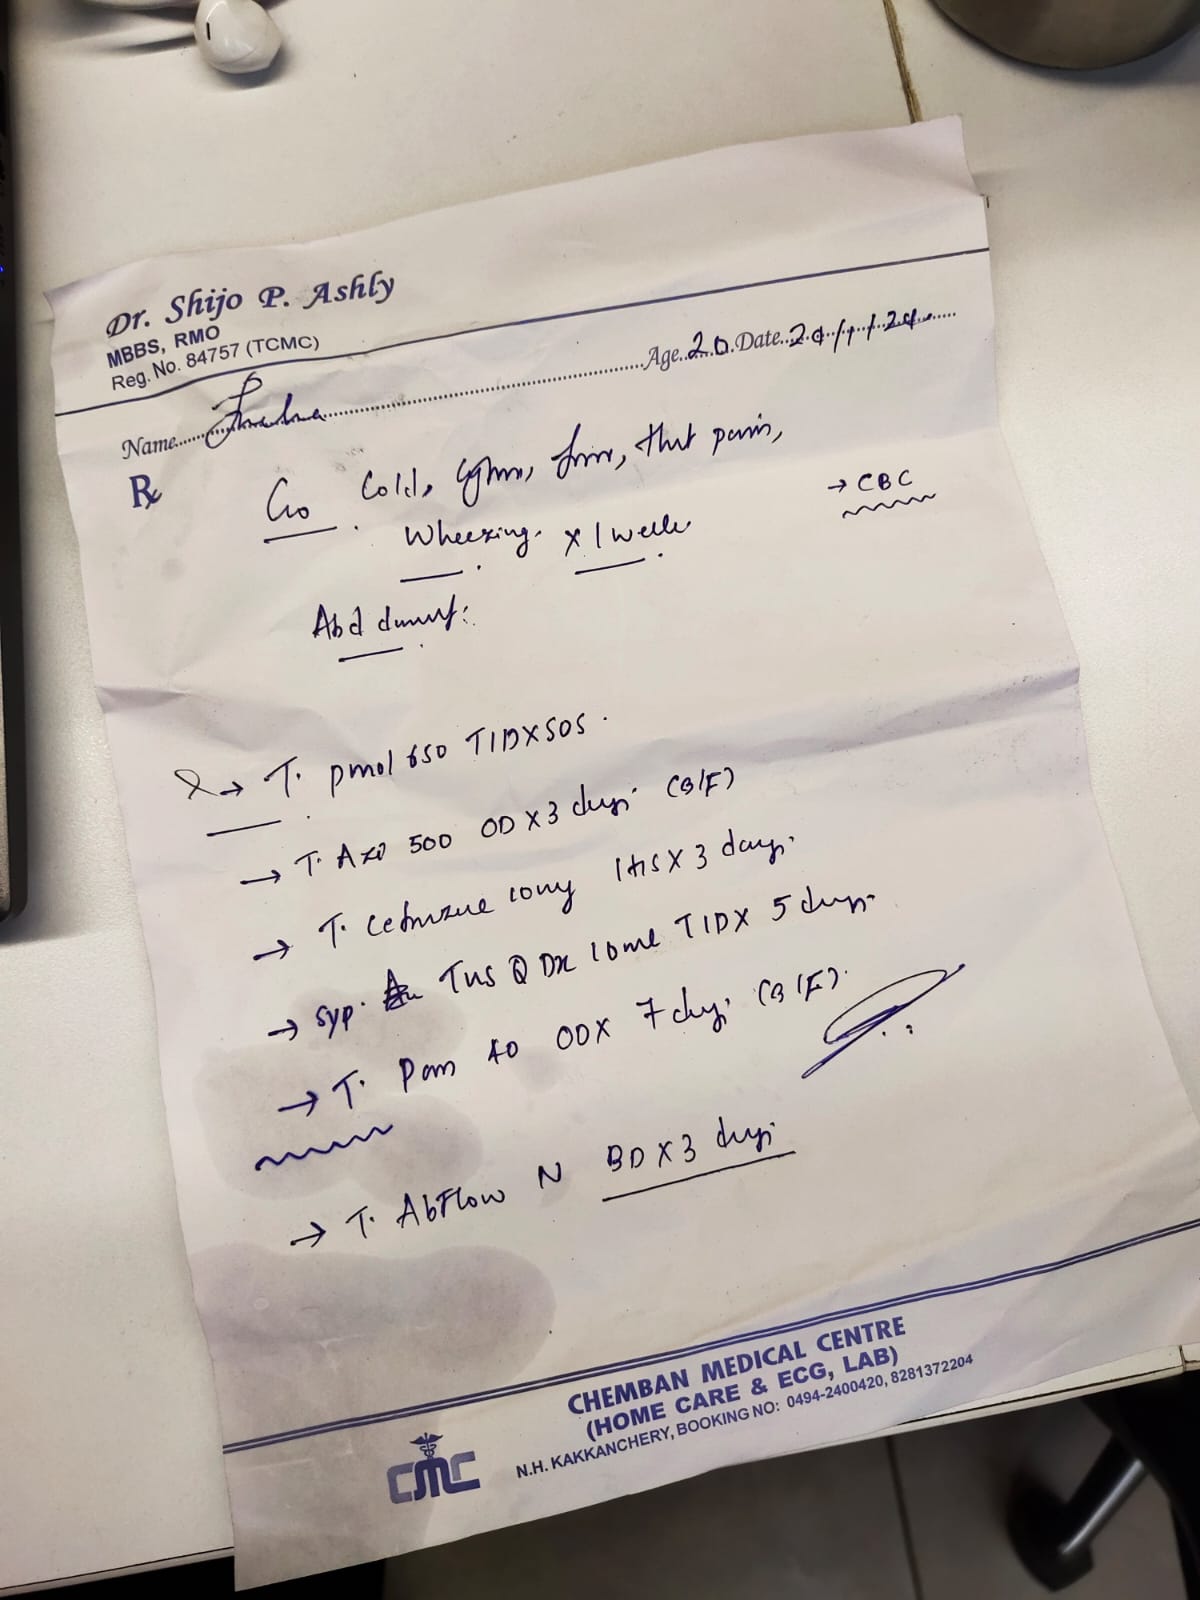 Dr. Shijo P. Ashly
MBBS, RMO
Reg. No. 84757 (TCMC)
Name
Age 20 Date
Rx
C/o Cold, fever, throat pain,
→ CBC
Wheezing. x 1 week
Abd
→ T. pmol 650 TID X SOS.
→ T. Azo 500 OD X 3 days (B/F)
→ T. Cetrizine 10mg 1 HS X 3 days.
→ Syp. Tus Q Dx 10ml TID X 5 days.
→ T. Pan 40 OD X 7 days (B/F).
→ T. AbFlow N BD X 3 days
CHEMBAN MEDICAL CENTRE
(HOME CARE & ECG, LAB)
N.H. KAKKANCHERY, BOOKING NO: 0494-2400420, 8281372204
CMC